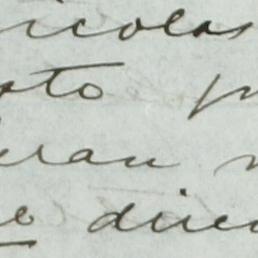 icolas
ato p
eran n
e dire